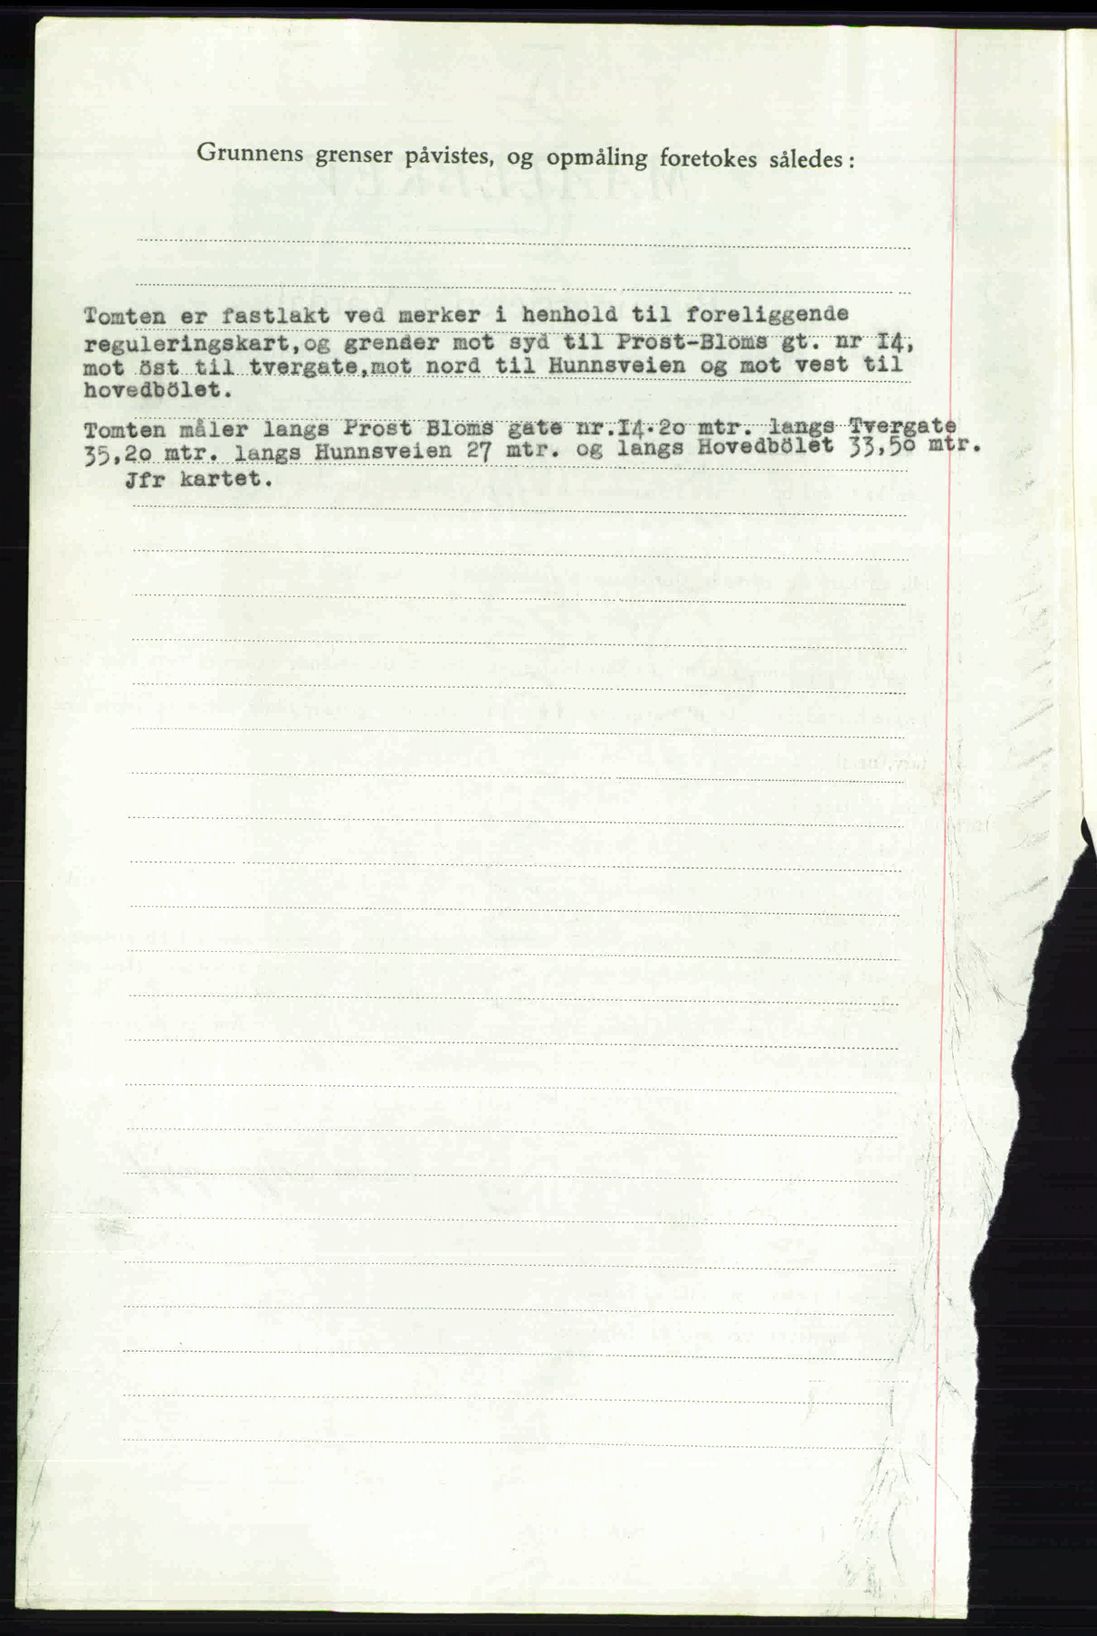 Grunnens grenser påvistes, og opmåling foretokes således:
Tomten er fastlakt ved merker i henhold til foreliggende
reguleringskart,og grender mot syd til Prost-Bloms gt. nr I4,
mot öst til tvergate,mot nord til Hunnsveien og mot vest til
hovedbölet.
Tomten måler langs Prost Bloms gate nr.I4.20 mtr. langs Tvergate
35,20 mtr. langs Hunnsveien 27 mtr. og langs Hovedbölet 33,50 mtr.
Jfr kartet.